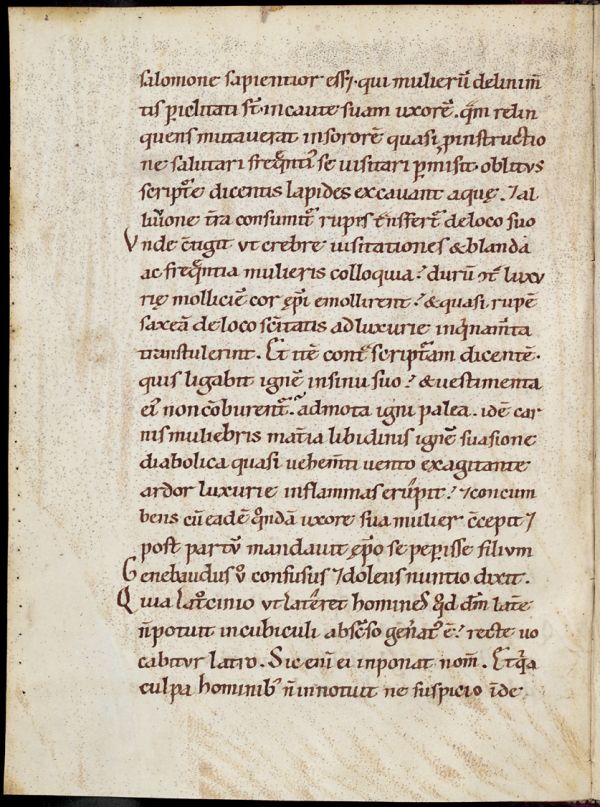 salomone sapientior esset· qui mulierū delinim̄
tis p̄iclitati st̄· incaute suam uxorē· qm̄ relin
quens mutauerat insororē quasi p̱instructio
ne salutari freqnt̄ se uisitari p̱misit· oblitus
scripture dicentis lapides excauant aquę· ⁊ al
luuione t̄ra consumit̄ rupes t̄nsfert̄ deloco suo
Vnde c̄tigit ut crebre uisitationes & blanda
ac freqntia mulieris colloquia· durū luxu
rię molliciē cor ep̄i emollirent· & quasi rupē
saxeā deloco sc̄itatis adluxurie inqnam̄ta
transtulerint. Et itē cont̄ scripturam dicentē·
quis ligabit ignē insinu suo? & uestimenta
ei non cōburent̄. admota igni palea· idē car
nis muliebris mat̄ia libidinis ignē suasione
diabolica quasi uehem̄ti uento exagitante
ardor luxurie inflammas erūpit· ⁊ concum
bens cū eadē qōdā uxore sua mulier c̄cepit ⁊
post partū mandauit ęp̄o se pep̱isse filium
Genebaudus ū confusus ⁊ dolens nuntio dixit.
Quia latͦcinio ut lat̄ret homines qd dm̄ lat̄e
n̄ potuit incubiculi absc̄so gen̄at ē· recte uo
cabitur latro. Sic eni ei inponat nom̄. Et qa
culpa hominib; n̄ innotuit ne suspicio īde